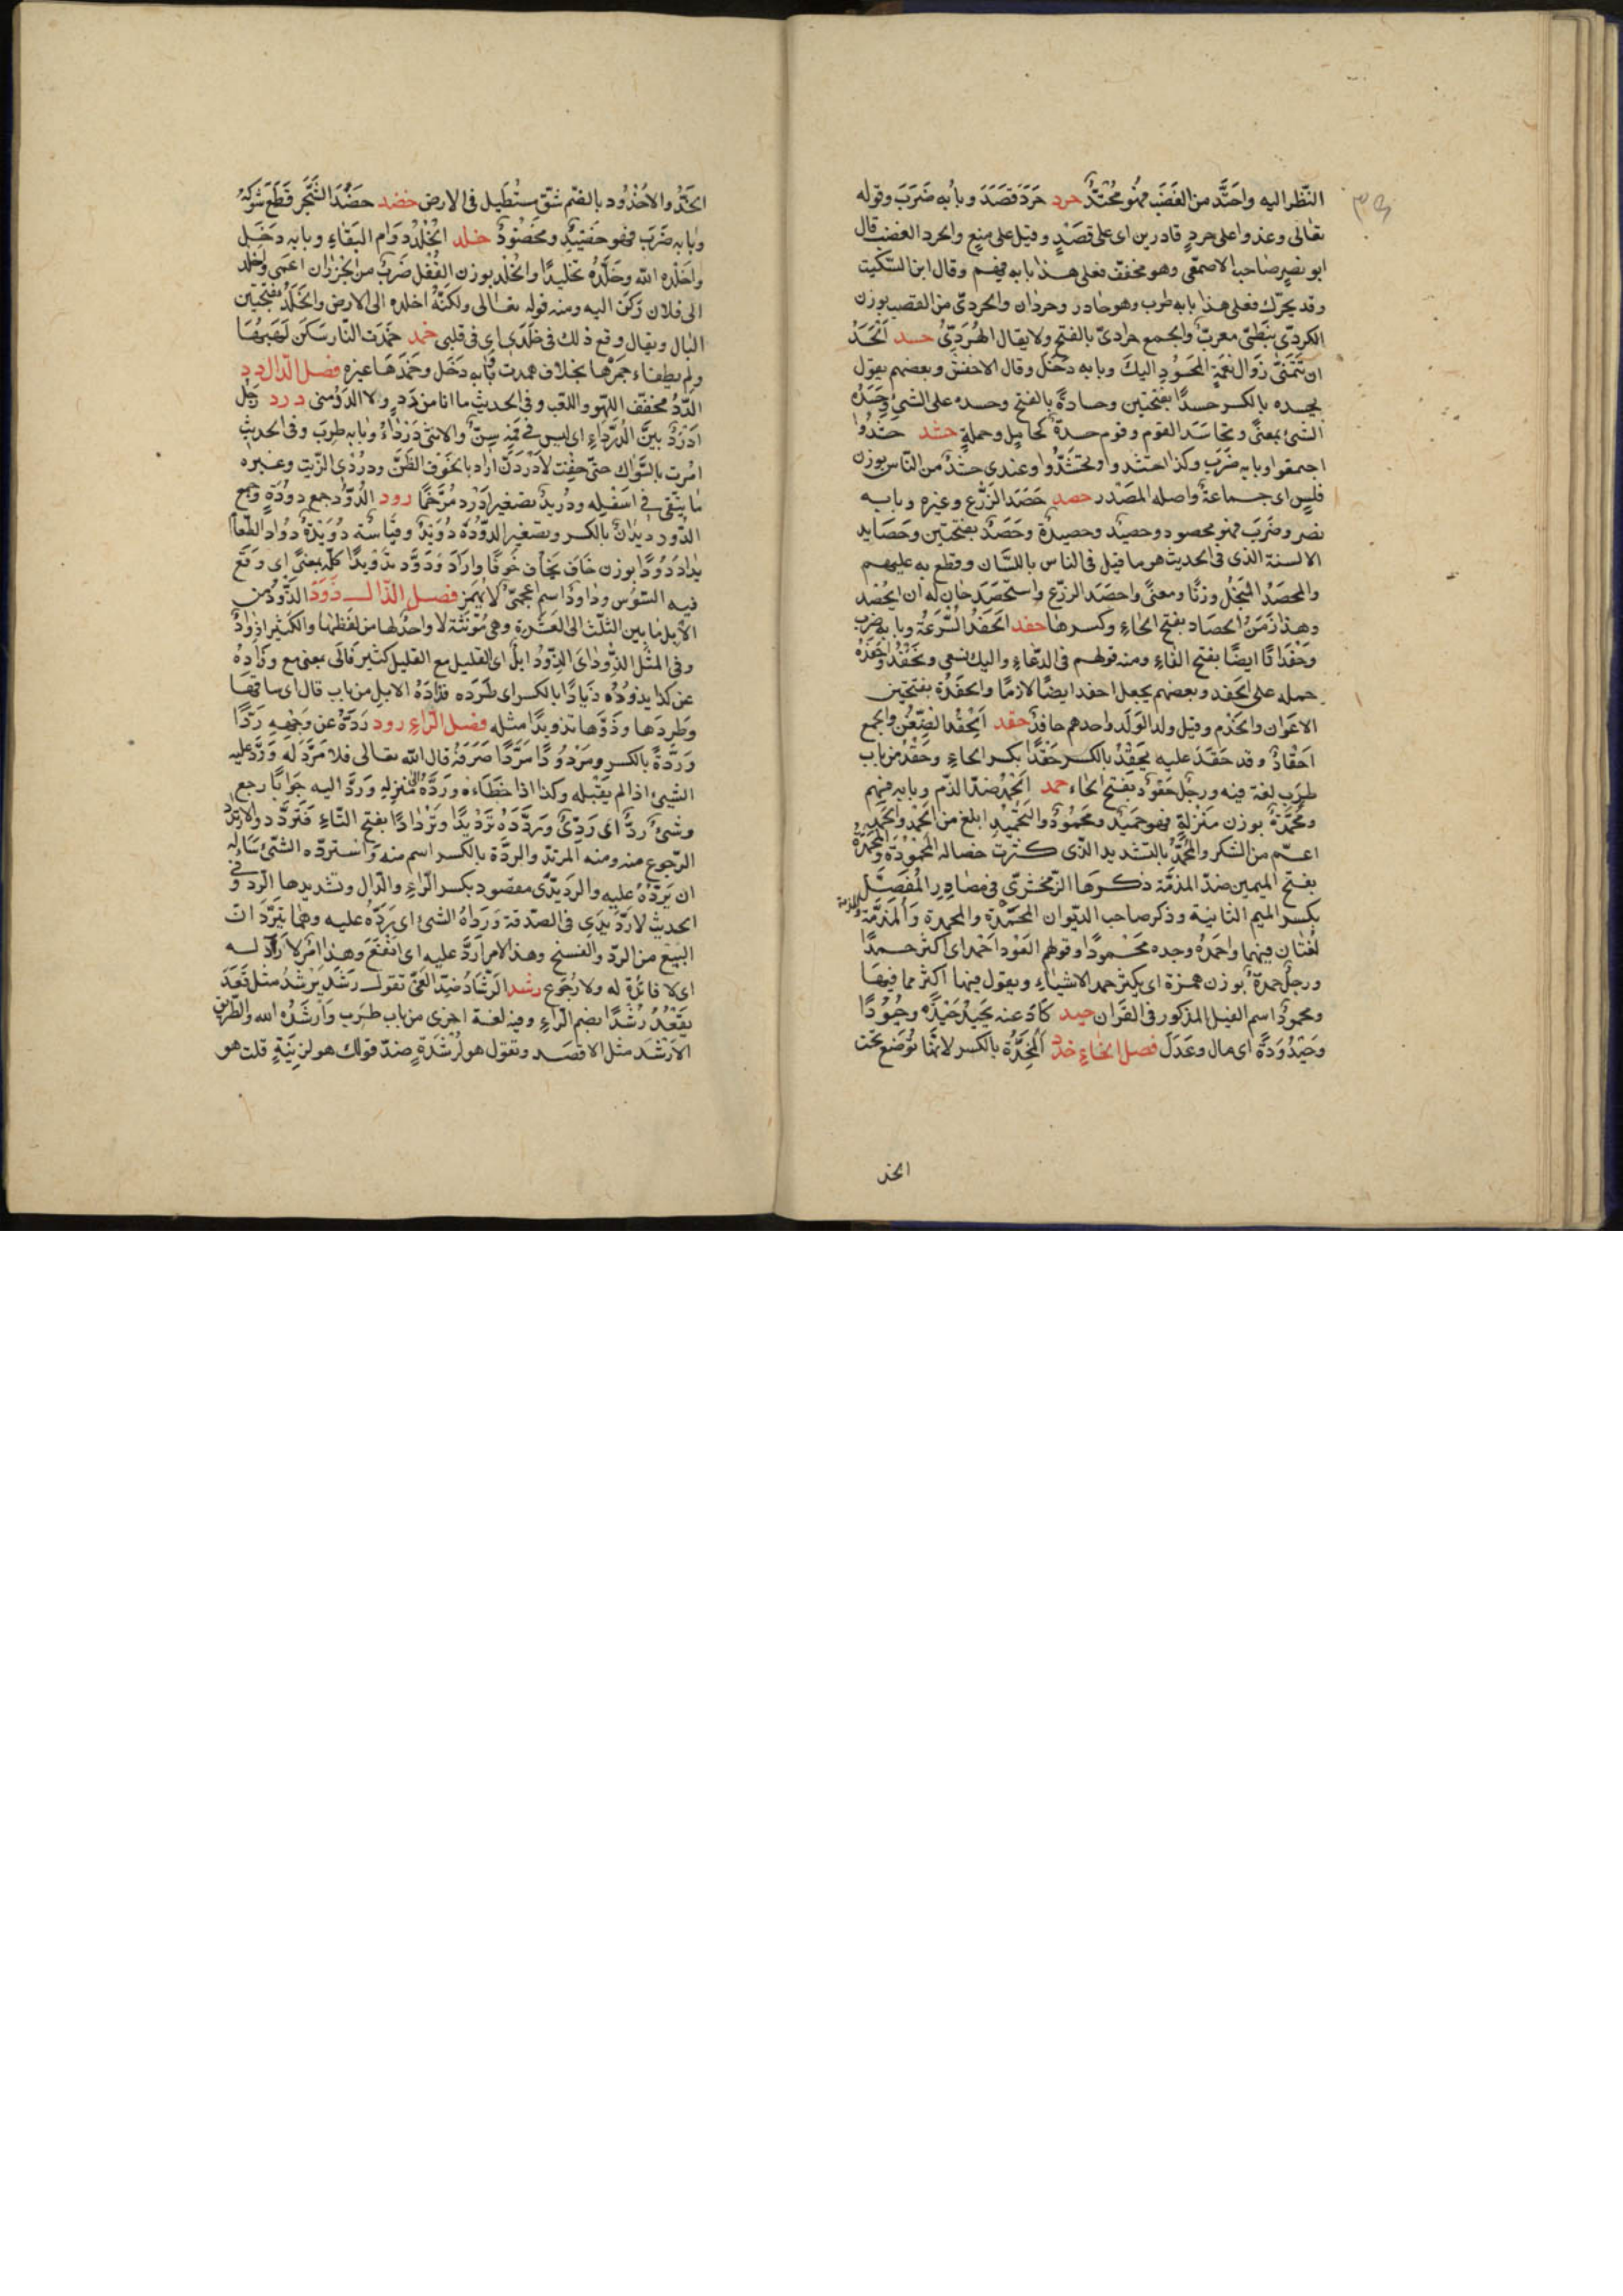 النّظر اليه واحتَدَّ من الغَضَب فهُو مُحْتَدٌّ حرد حَرَدَ قَصَدَ وبابُه ضَرَبَ وقوله
تعالى وغدوا على حردٍ قادرين اى على قَصْدٍ وقيل على منعٍ والحرد الغضب قال
ابو نصرٍ صاحب الاصمعّى وهو مخفّف فعلى هذا بابه فهم وقال ابن السّكّيت
وقد يحرّك فعلى هذا بابه طرب وهو حادر وحردان والحردىّ من القصب بوزن
الكردىّ نبَطىّ معربٌ والجمع حرادىّ بالفتح ولا يقال الهُرَدِىُّ حسد اَلْحَسَدُ
ان تَتَمَنّى زَوال نعْمَةِ المحَسُودِ اليكَ وبابه دَخَل وقال الاخفش وبعضهم يقول
يحسده بالكسر حسدًا بفتحتين وحسادةً بالفتح وحسده على الشىء وحَسَدَهُ
الشئ بمعنًى وتحاسَدَ القوم وقوم حسدةٌ كحاملٍ وحملةٍ حشد حَشَدُوا
اجتمعوا وبابه ضَرَبَ وكذا احتشدوا وتحَشَّدُوا وعندى حشْدٌ من النّاس بوزن
فلسٍ اى جماعةٌ واصله المَصْدر حصد حَصَدَ الزَّرْع وغيره وبابه
نصر وضَرَبَ فهو محصود وحصيدٌ وحصيدةٌ وحَصَدٌ بفتحتين وحَصَايد
الالسنة الذى فى الحديث هو ما قيل فى الناس باللسَان وقطع به عليهم
والمحصَدُ المنْجَلُ وزنًا ومعنًى واحصَدَ الزرّع واستَحْصَدَ حان له ان يُحْصَد
وهذا زَمَنُ الحصَاد بفتح الحاءِ وكسرها حفد اَلحَفْدُ السُّرْعَةُ وبابه ضرب
وحَفَدَانًا ايضًا بفتح الفاءِ ومنه قولهم فى الدعَّاءِ واليك نسعى ونحَفْدُ واحْفَدَهُ
حمله على الحَفد وبعضهم يجعل احفد ايضًا لازمًا والحَفَدَةُ بفتحتين
الاعَوان والخدَم وقيل ولد الوَلَد واحدهم حافدٌ حقد اَلحِقْدُ الضِّغْنُ والجمع
احْقادٌ وقد حَقَدَ عليه يحْقِدُ بالكسر حِقْدًا بكسر الحاءِ وحَقِدَ من باب
طَرِبَ لغة فيه ورجُل حَقُودٌ بفَتح الحاء حمد الَحمْدُ ضدّ الذّم وبابه فهم
ومَحْمَدَةٌ بوزن مَنْزلةٍ فهو حَمِيدٌ ومَحْمُودٌ والتحْمِيْدُ ابلغ من الحَمْد والحَمْدُ
اعمّ من الشكر والمحُمَّدُ بالتشديد الّذى كثرت خصاله المحْمُوْدَة والمحْمَدَةُ
بفتح الميمين ضدّ المذمّة ذكرها الزّمخشرىّ فى مصَادِر المُفَصَّل
بكسر الميم الثانية وذكر صاحب الدّيوان المحَمَدة والمحمِدة وَالمَذَمَّةُ والمذمة
لُغتان فيهما واحَمَدَهُ وجده مَحْمودًا وقولهم العَوْد احَمْد اى اكثر حمدًا
ورجلٌ حمدةٌ بوزن همزة اى يكثر حمد الاشياءِ ويقول فيها اكثر مما فيهَا
ومحمودٌ اسم الفيل المذكور فى القران حيد حَادَ عنه يَحِيدُ حَيْدَةً وحُيُوْدًا
وحَيْدُوْدَةً اى مال وعَدَلَ فصل الخاءِ خدد اَلمِخدَّة بالكسر لانّها تُوضع تحت
الخد
الخَدِّ والاخُدُود بالضّم شقّ مستَطيل فى الارض خضد خضَدَ الشَجَر قَطَعَ شَوكَهُ
وبابه ضَرَبَ فهو خَضِيدٌ ومَخْضُودٌ خلد الخُلْدُ دوَام البَقَاءِ وبابه دَخَل
واخلده اللّه وخَلَّدَهُ تخليدًا والخُلْد بوزن القُفْل ضَربٌ من الجرْذان اعَمى واَخْلَد
الى فلان رَكَنَ اليه ومنه قوله تعَالى ولكنّهُ اخلد الى الارض والخَلَدُ بفتحتين
البَال ويقال وقع ذلك فى خلَدى اى فى قلبى خمد خَمَدَت النّار سَكَن لَهَبُهَا
ولم يطفاء جَمرُها بخلاف همدت وبَابه دَخَل وخَمَدَهَا غيره فصل الدّال دد
الدَّدُ مخفّف اللهو واللعب وفى الحديث ما انا من دَدٍ ولا الدَدُ منى درد رَجُل
ادَرْدُ بيّنُ الدَرَدِ اى ليس فى فَمِه سِنٌّ والانثى دَرْدَاءُ وبابه طَرِبَ وفى الحديث
امُرت بالسِّوَاك حتّى خفْت لاَدْرَدَنَّ اراد بالخَوف الظَنَّ ودُرْدِىُّ الزّيت وغيره
ما يَبْقى فى اسَفْلِه ودُريدٌ تصَغير ادَرْدَ مُرَخَّمًا دود الدُّوْدُ جمع دودَةٍ وجمع
الدّود دِيدَانٌ بالكسر وتصغير الدّودَة دُوَيْدٌ وقيَاسُه دُوَيْدَةٌ ودَادَ الطّعَامُ
يدَادُ دَوْدًا بوزن خَافَ يخَافُ خَوْفًا وادَادَ ودَوَّدَ تدْويدًا كلّه بمعنًى اى وَقَعَ
فيه السّوس وداودُ اسم اعجَمىٌّ لا يُهمَز فصل الذّال ذَوَدَ الذَّوْدُ من
الابل ما بين الثلث الى العَشْرة وهى مُؤنثة لا واحد لها من لَفظها والكثير اذوَادٌ
وفى المثل الذَّودُ الى الذّوْدُ ابلٌ اى القليل مع القليل كثير فالى بمعنى مع وذَادَهُ
عن كذا يذوُدُه ذيادًا بالكسر اى طَرَدَه وذَادَهُ الابل من باب قال اى ساقهَا
وطَردَها وذَوَّدَها تذويدًا مثله فصل الرّاءِ ردد رَدّهُ عن وَجْهِه رَدًّا
ورِدَّةً بالكسر ومَرْدُوْدًا ومَرَدًّا صَرَفَهُ قال اللّه تعالى فلا مَرَدَّ له ورَدَّ عليه
الشىء اذا لم يَقْبَله وكذا اذا خَطَّاءه ورَدَّهُ الى منزله ورَدَّ اليه جَوابًا رجع
وشئٌ رَدٌّ اى رَدِىٌّ ورَدَّدَهُ تَرْديْدًا وتَرْدَادًا بفتح التّاءِ فَتَرَدَّدَ والارتداد
الرّجوع منه ومنه المرتدّ والرِدَّة بالكسر اسم منه وَاسْتردّه الشئ سَالهُ
ان يَرُدَّهُ عليه والرِدِّيْدَى مقصود بكسر الرّاءِ والدّال وتشديدها الرّد وفى
الحديث لا رِدِّيدَى فى الصّدقة ورَدَاهُ الشئ اى يَرُدَّهُ عليه وهما يَتَرَادَّانِ
البَيْعَ من الرّد والفسخ وهذا الامر ارَدّ عليه اى انْفَعُ وهذا امْر لا رَادَّةَ له
اى لا فائدة له ولا رُجُوع رشد الَرّشَادُ ضِدّ الغَىّ تقول رَشَدَ يَرْشُدُ مثل قَعَدَ
يقَعُدُ رُشْدًا بضم الرّاءِ وفيه لغة اخرى من باب طَرِبَ وَارْشَدَهُ اللّه والطّريق
الاَرْشَد مثل الاقصَد وتقول هو لرِشْدَةٍ ضدّ قولك هو لزِنْيَةٍ قلت هو